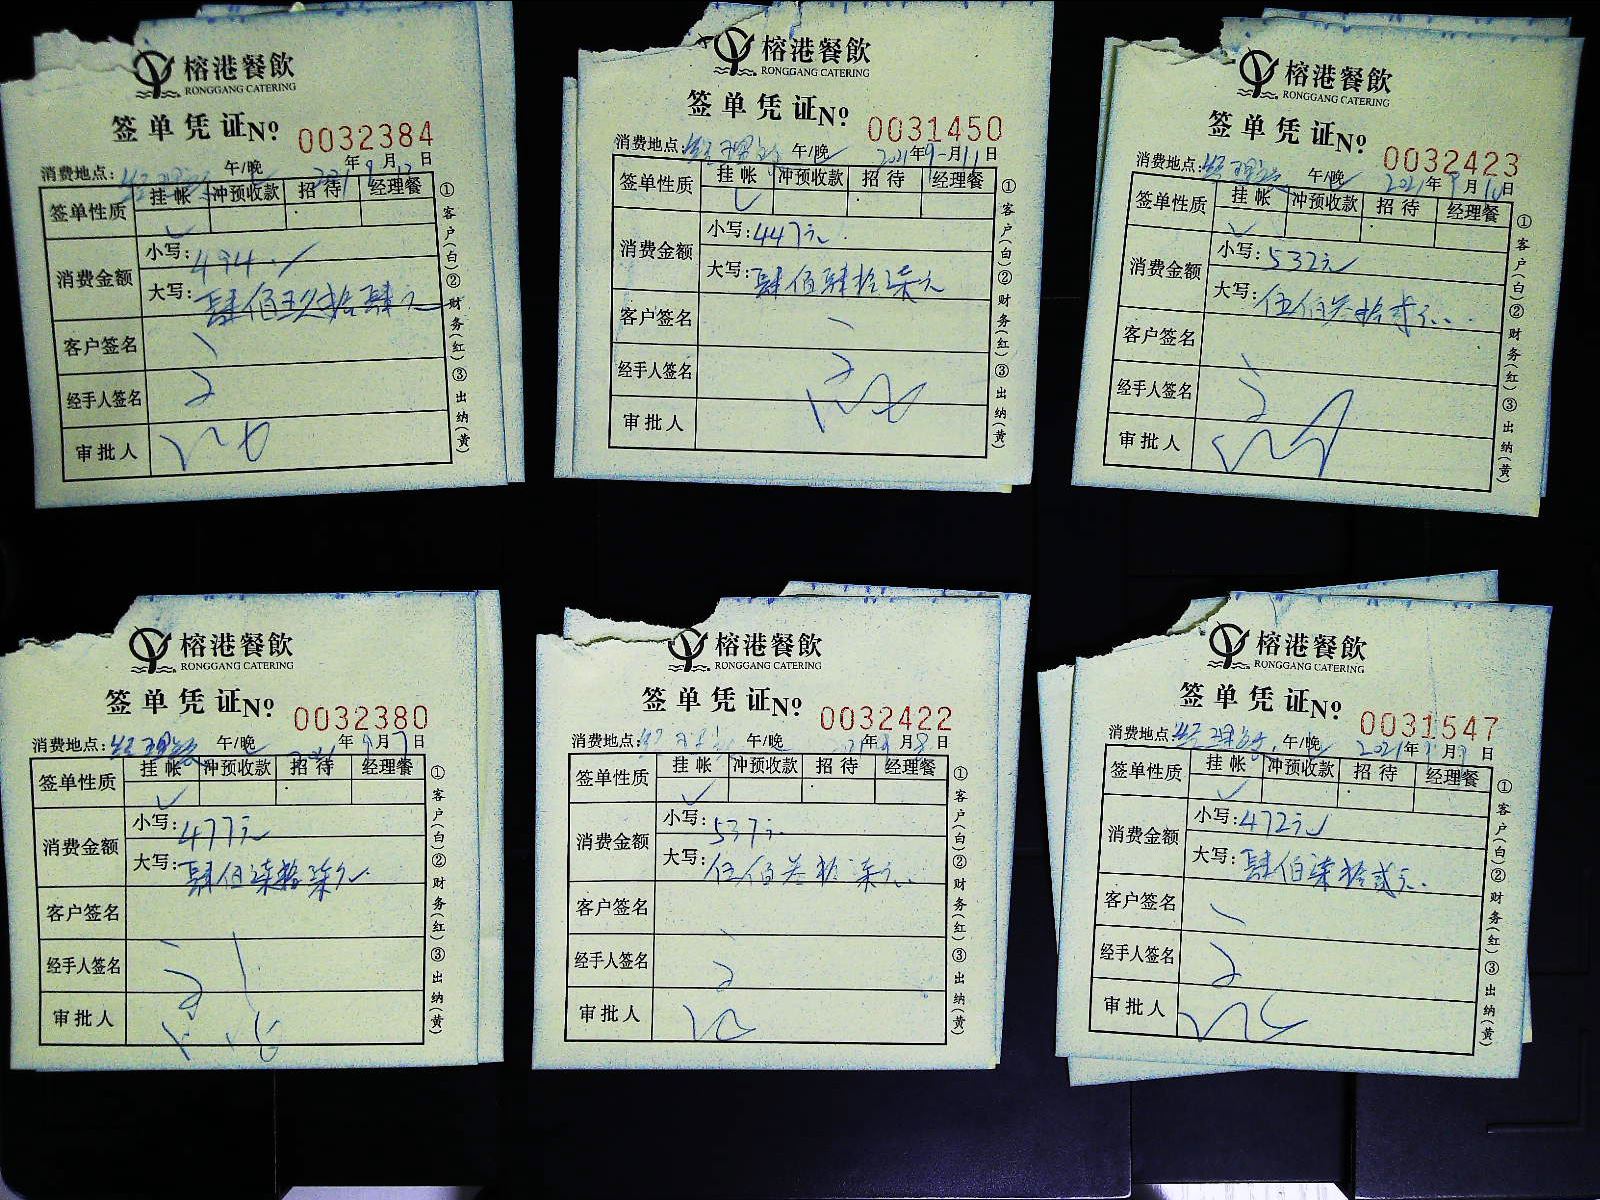 榕港餐飲
RONGGANG CATERING
签单凭证 Nº 0032384
消费地点: 经理餐 午/晚 2021年9月12日
签单性质 挂帐 冲预收款 招待 经理餐
✓
消费金额 小写: 494.
大写: 肆佰玖拾肆元
客户签名
经手人签名
审批人
①客户(白)②财务(红)③出纳(黄)
榕港餐飲
RONGGANG CATERING
签单凭证 Nº 0031450
消费地点: 经理餐 午/晚 2021年9月11日
签单性质 挂帐 冲预收款 招待 经理餐
✓
消费金额 小写: 447元
大写: 肆佰肆拾柒元
客户签名
经手人签名
审批人
①客户(白)②财务(红)③出纳(黄)
榕港餐飲
RONGGANG CATERING
签单凭证 Nº 0032423
消费地点: 经理餐 午/晚 2021年9月10日
签单性质 挂帐 冲预收款 招待 经理餐
✓
消费金额 小写: 532元
大写: 伍佰叁拾贰元
客户签名
经手人签名
审批人
①客户(白)②财务(红)③出纳(黄)
榕港餐飲
RONGGANG CATERING
签单凭证 Nº 0032380
消费地点: 经理餐 午/晚 2021年9月7日
签单性质 挂帐 冲预收款 招待 经理餐
✓
消费金额 小写: 477元
大写: 肆佰柒拾柒元
客户签名
经手人签名
审批人
①客户(白)②财务(红)③出纳(黄)
榕港餐飲
RONGGANG CATERING
签单凭证 Nº 0032422
消费地点: 经理餐 午/晚 21年9月8日
签单性质 挂帐 冲预收款 招待 经理餐
✓
消费金额 小写: 537元
大写: 伍佰叁拾柒元
客户签名
经手人签名
审批人
①客户(白)②财务(红)③出纳(黄)
榕港餐飲
RONGGANG CATERING
签单凭证 Nº 0031547
消费地点: 经理餐 午/晚 2021年9月9日
签单性质 挂帐 冲预收款 招待 经理餐
✓
消费金额 小写: 472元
大写: 肆佰柒拾贰元
客户签名
经手人签名
审批人
①客户(白)②财务(红)③出纳(黄)